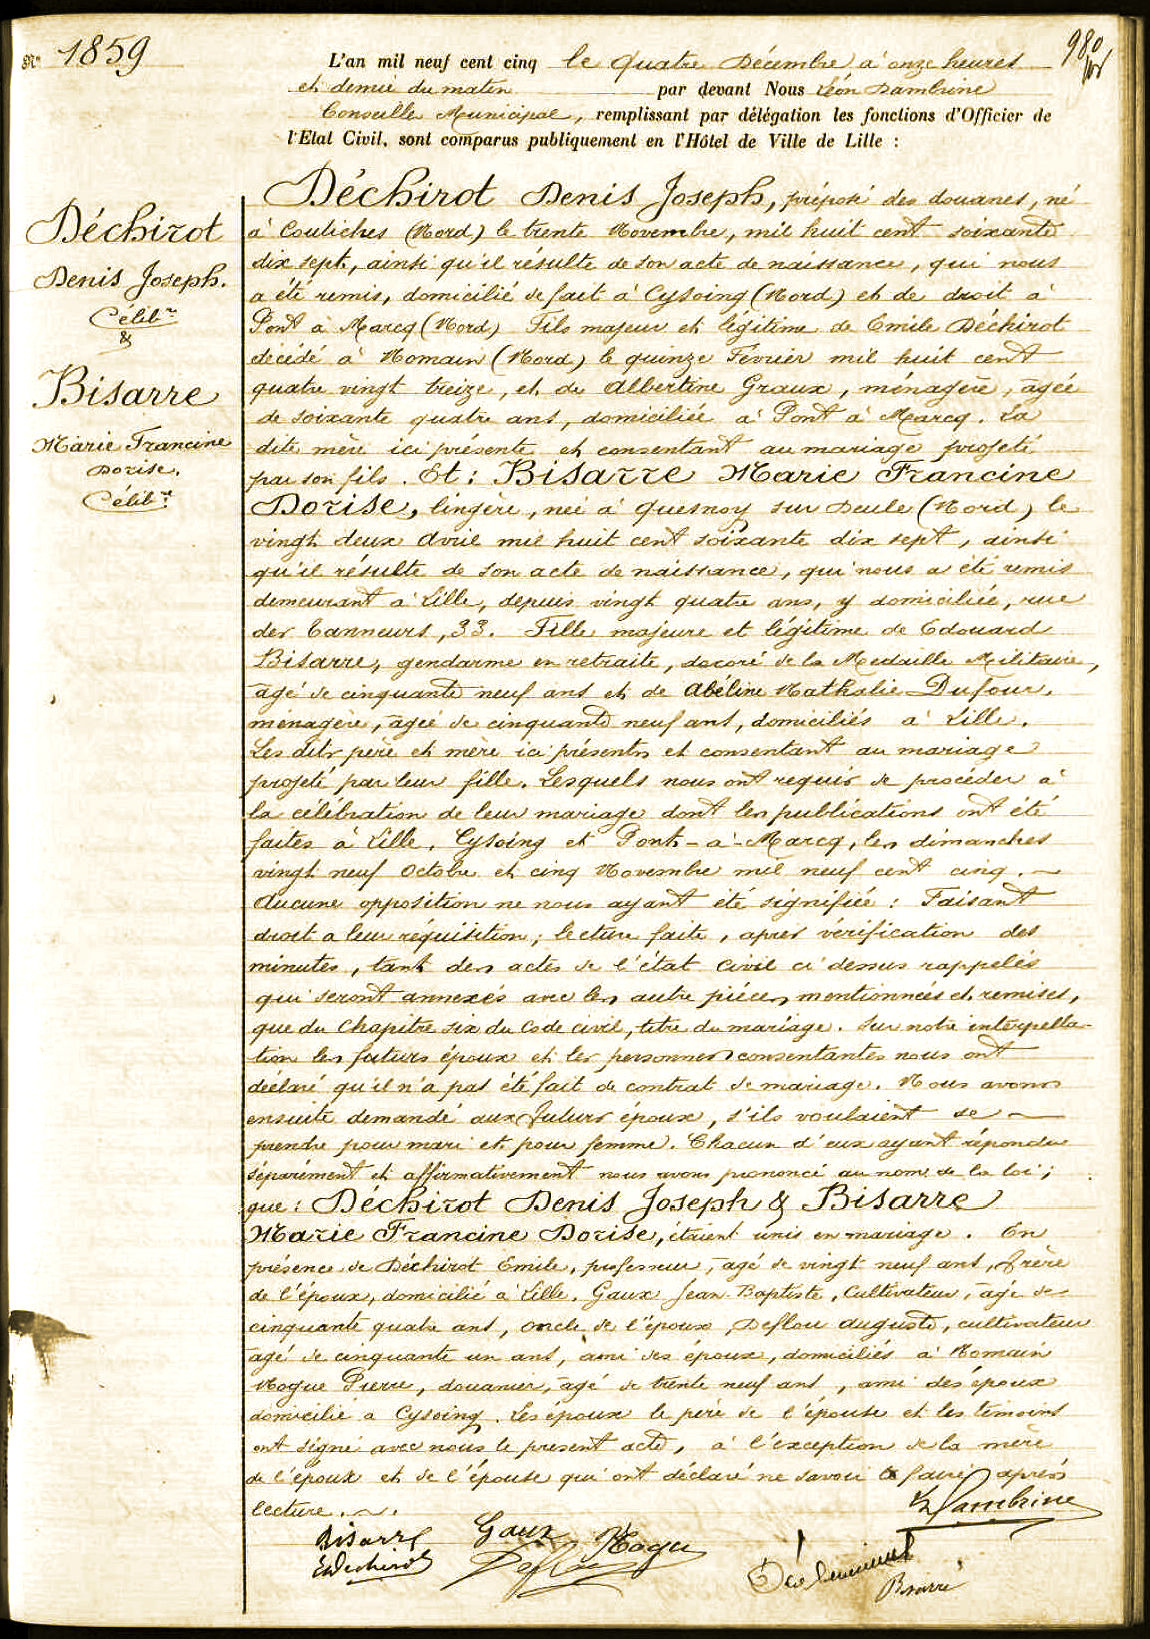 N° 1859
980
L'an mil neuf cent cinq le quatre Décembre à onze heures
et demie du matin par devant Nous Léon Dambrine
Conseille Municipal, remplissant par délégation les fonctions d'Officier de
l'Etat Civil, sont comparus publiquement en l'Hôtel de Ville de Lille :
Déchirot
Denis Joseph.
Célib.re
&
Bisarre
Marie Francine
Dorise.
Célib.re
Déchirot Denis Joseph, préposé des douanes, né
à Coutiches (Nord) le trente Novembre, mil huit cent soixante
dix sept, ainsi qu'il résulte de son acte de naissance, qui nous
a été remis, domicilié de fait à Cysoing (Nord) et de droit à
Pont à Marcq (Nord) Fils majeur et légitime de Emile Déchirot
décédé à Nomain (Nord) le quinze Février mil huit cent
quatre vingt treize, et de Albertine Graux, ménagère, âgée
de soixante quatre ans, domiciliée à Pont à Marcq. La
dite mère ici présente et consentant au mariage projeté
par son fils. Et : Bisarre Marie Francine
Dorise, lingère, née à Quesnoy sur Deule (Nord) le
vingt deux Avril mil huit cent soixante dix sept, ainsi
qu'il résulte de son acte de naissance, qui nous a été remis
demeurant à Lille, depuis vingt quatre ans, y domiciliée, rue
des Tanneurs, 33. Fille majeure et légitime de Edouard
Bisarre, gendarme en retraite, décoré de la Medaille Militaire,
âgé de cinquante neuf ans et de Abéline Nathalie Dufour,
ménagère, âgée de cinquante neuf ans, domiciliés à Lille.
Les dits père et mère ici présents et consentant au mariage
projeté par leur fille. Lesquels nous ont requis de procéder à
la célébration de leur mariage dont les publications ont été
faites à Lille, Cysoing et Pont-à-Marcq, les dimanches
vingt neuf Octobre et cinq Novembre mil neuf cent cinq.
Aucune opposition ne nous ayant été signifiée : Faisant
droit a leur réquisition ; lecture faite, après vérification des
minutes, tant des actes de l'état civil ci dessus rappelés
qui seront annexés avec les autre pièces mentionnées et remises,
que du Chapitre six du Code civil, titre du mariage. Sur notre interpella-
tion les futurs époux et les personnes consentantes nous ont
déclaré qu'il n'a pas été fait de contrat de mariage. Nous avons
ensuite demandé aux futurs époux, s'ils voulaient se
prendre pour mari et pour femme. Chacun d'eux ayant répondu
séparément et affirmativement nous avons prononcé au nom de la loi ;
que : Déchirot Denis Joseph & Bisarre
Marie Francine Dorise, étaient unis en mariage. En
présence de Déchirot Emile, professeur, âgé de vingt neuf ans, frère
de l'époux, domicilié à Lille, Gaux Jean-Baptiste, Cultivateur, âgé de
cinquante quatre ans, oncle de l'époux, Deflou Auguste, cultivateur
âgé de cinquante un ans, ami des époux, domiciliés à Nomain
Nogue Pierre, douanier, âgé de trente neuf ans, ami des époux
domicilié à Cysoing. Les époux le père de l'épouse et les témoins
ont signé avec nous le présent acte, à l'exception de la mère
de l'époux et de l'épouse qui ont déclaré ne savoir le faire après
lecture.
Dambrine
Bisarre Gaux Nogue
E Dechirot
Bisarre